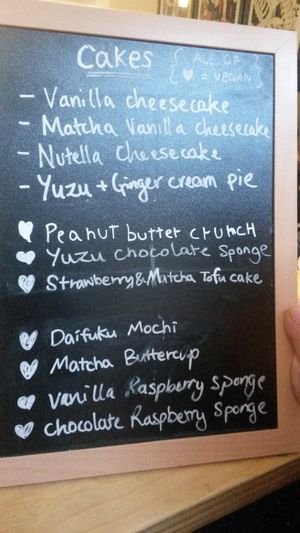 Cakes { ALL GF
{ ♥ = VEGAN
- Vanilla cheesecake
- Matcha Vanilla cheesecake
- Nutella Cheesecake
- Yuzu + Ginger cream pie
♥ Peanut butter crunch
♥ Yuzu chocolate Sponge
♥ Strawberry & Matcha Tofu cake
♥ Daifuku Mochi
♥ Matcha Buttercup
♥ Vanilla Raspberry Sponge
♥ chocolate Raspberry Sponge